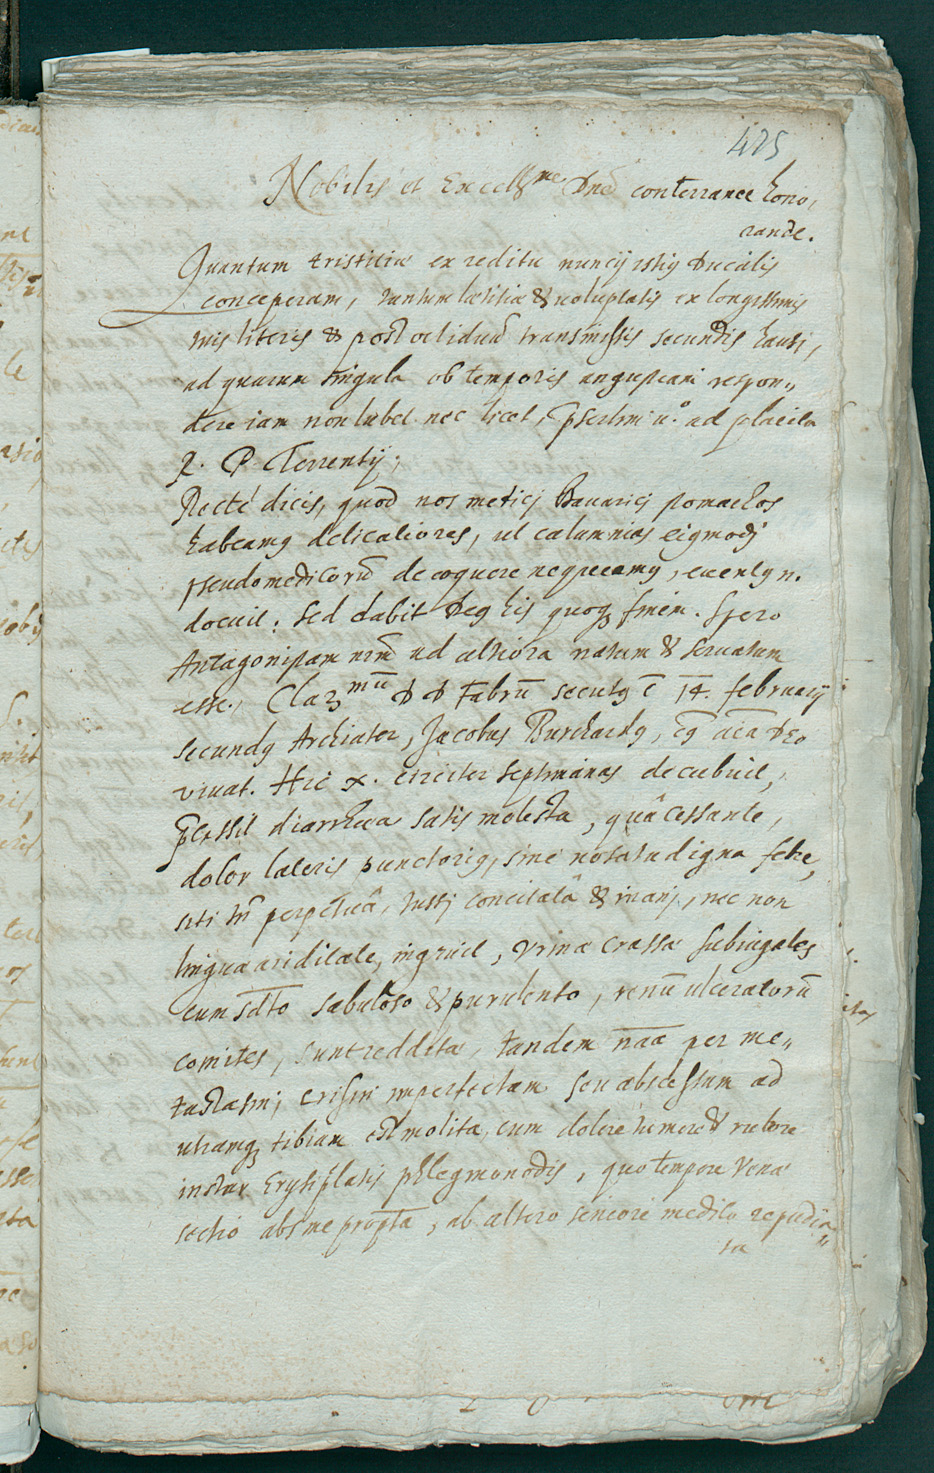 425
Nobilis et Excell.me Dne conterranee hono,
rande.
Quantum tristitiae ex reditu nuncij istig Ducalis
conceperam, tantum laetitiae & voluptatis ex longissimis
tuis literis & post octiduu transmissis secundis hausi,
ad quarum singula ob temporis angustiam respon,,
dere iam non lubet nec licet, psertim u.o ad placita
R. P. Terrentij;
Recte dicis, quod nos medici Bavarici stomachos
habeamg delicatiores, ut calumnias eigmodi
pseudomedicoru decoquere nequeamg, eventg n.
docuit. Sed dabit Deg his quoq finem. Spero
Antagonistam nrm ad altiora natum & servatum
esse. Clar mu D D Fabru secutg e 14. february
secundg Archiater, Jacobus Burchardg, cg aia Deo
vivat. Hic x. circiter septimanas decubuit,
pcessit diarrhoea satis molesta, qua cessante,
dolor lateris punctorig, sine notatu digna febre,
siti tn perpetua, tussi concitata & inani, nec non
linguae ariditate, ingruit, Urinae crassae subiugales
cum sdto sabuloso & purulento, renu ulceratoru
comites, sunt redditae, tandem naa per me,,
tastasin, crisin imperfectam seu abscessum ad
utramq tibiam est molita, cum dolore tumore & rubore
instar Erysiplatis phlegmonodis, quo tempore Venae
sectio abs me propta, ab altero seniore medico repudia,,
ta